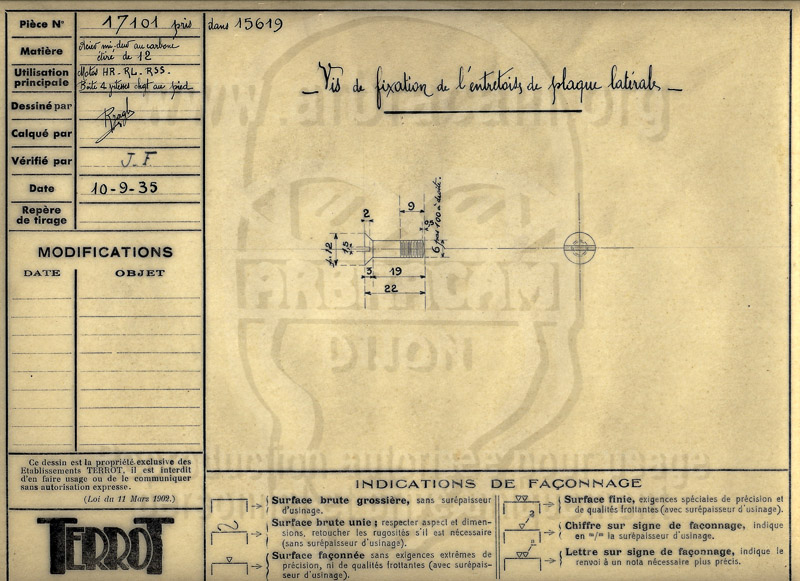 Pièce N° 17101 pris dans 15619
Matière Acier mi-dur au carbone
étiré de 12
Utilisation principale Motos HR. RL. RSS.
Boite 4 vitesses chgt au pied
Dessiné par
Calqué par
Vérifié par J.F
Date 10-9-35
Repère de tirage
MODIFICATIONS
DATE OBJET
Ce dessin est la propriété exclusive des
Etablissements TERROT, il est interdit
d'en faire usage ou de le communiquer
sans autorisation expresse.
(Loi du 11 Mars 1902.)
TERROT
Vis de fixation de l'entretoise de plaque latérale
9
2
12
1,5
6 pas 100 à droite.
3 19
22
www.arbracam.org
ARBRACAM
MOTTO
INDICATIONS DE FAÇONNAGE
Surface brute grossière, sans surépaisseur
d'usinage.
Surface brute unie ; respecter aspect et dimen-
sions, retoucher les rugosités s'il est nécessaire
(sans surépaisseur d'usinage).
Surface façonnée sans exigences extrêmes de
précision, ni de qualités frottantes (avec surépais-
seur d'usinage).
Surface finie, exigences spéciales de précision et
de qualités frottantes (avec surépaisseur d'usinage).
3
Chiffre sur signe de façonnage, indique
en m/m la surépaisseur d'usinage.
Lettre sur signe de façonnage, indique le
renvoi à un nota nécessaire plus précis.